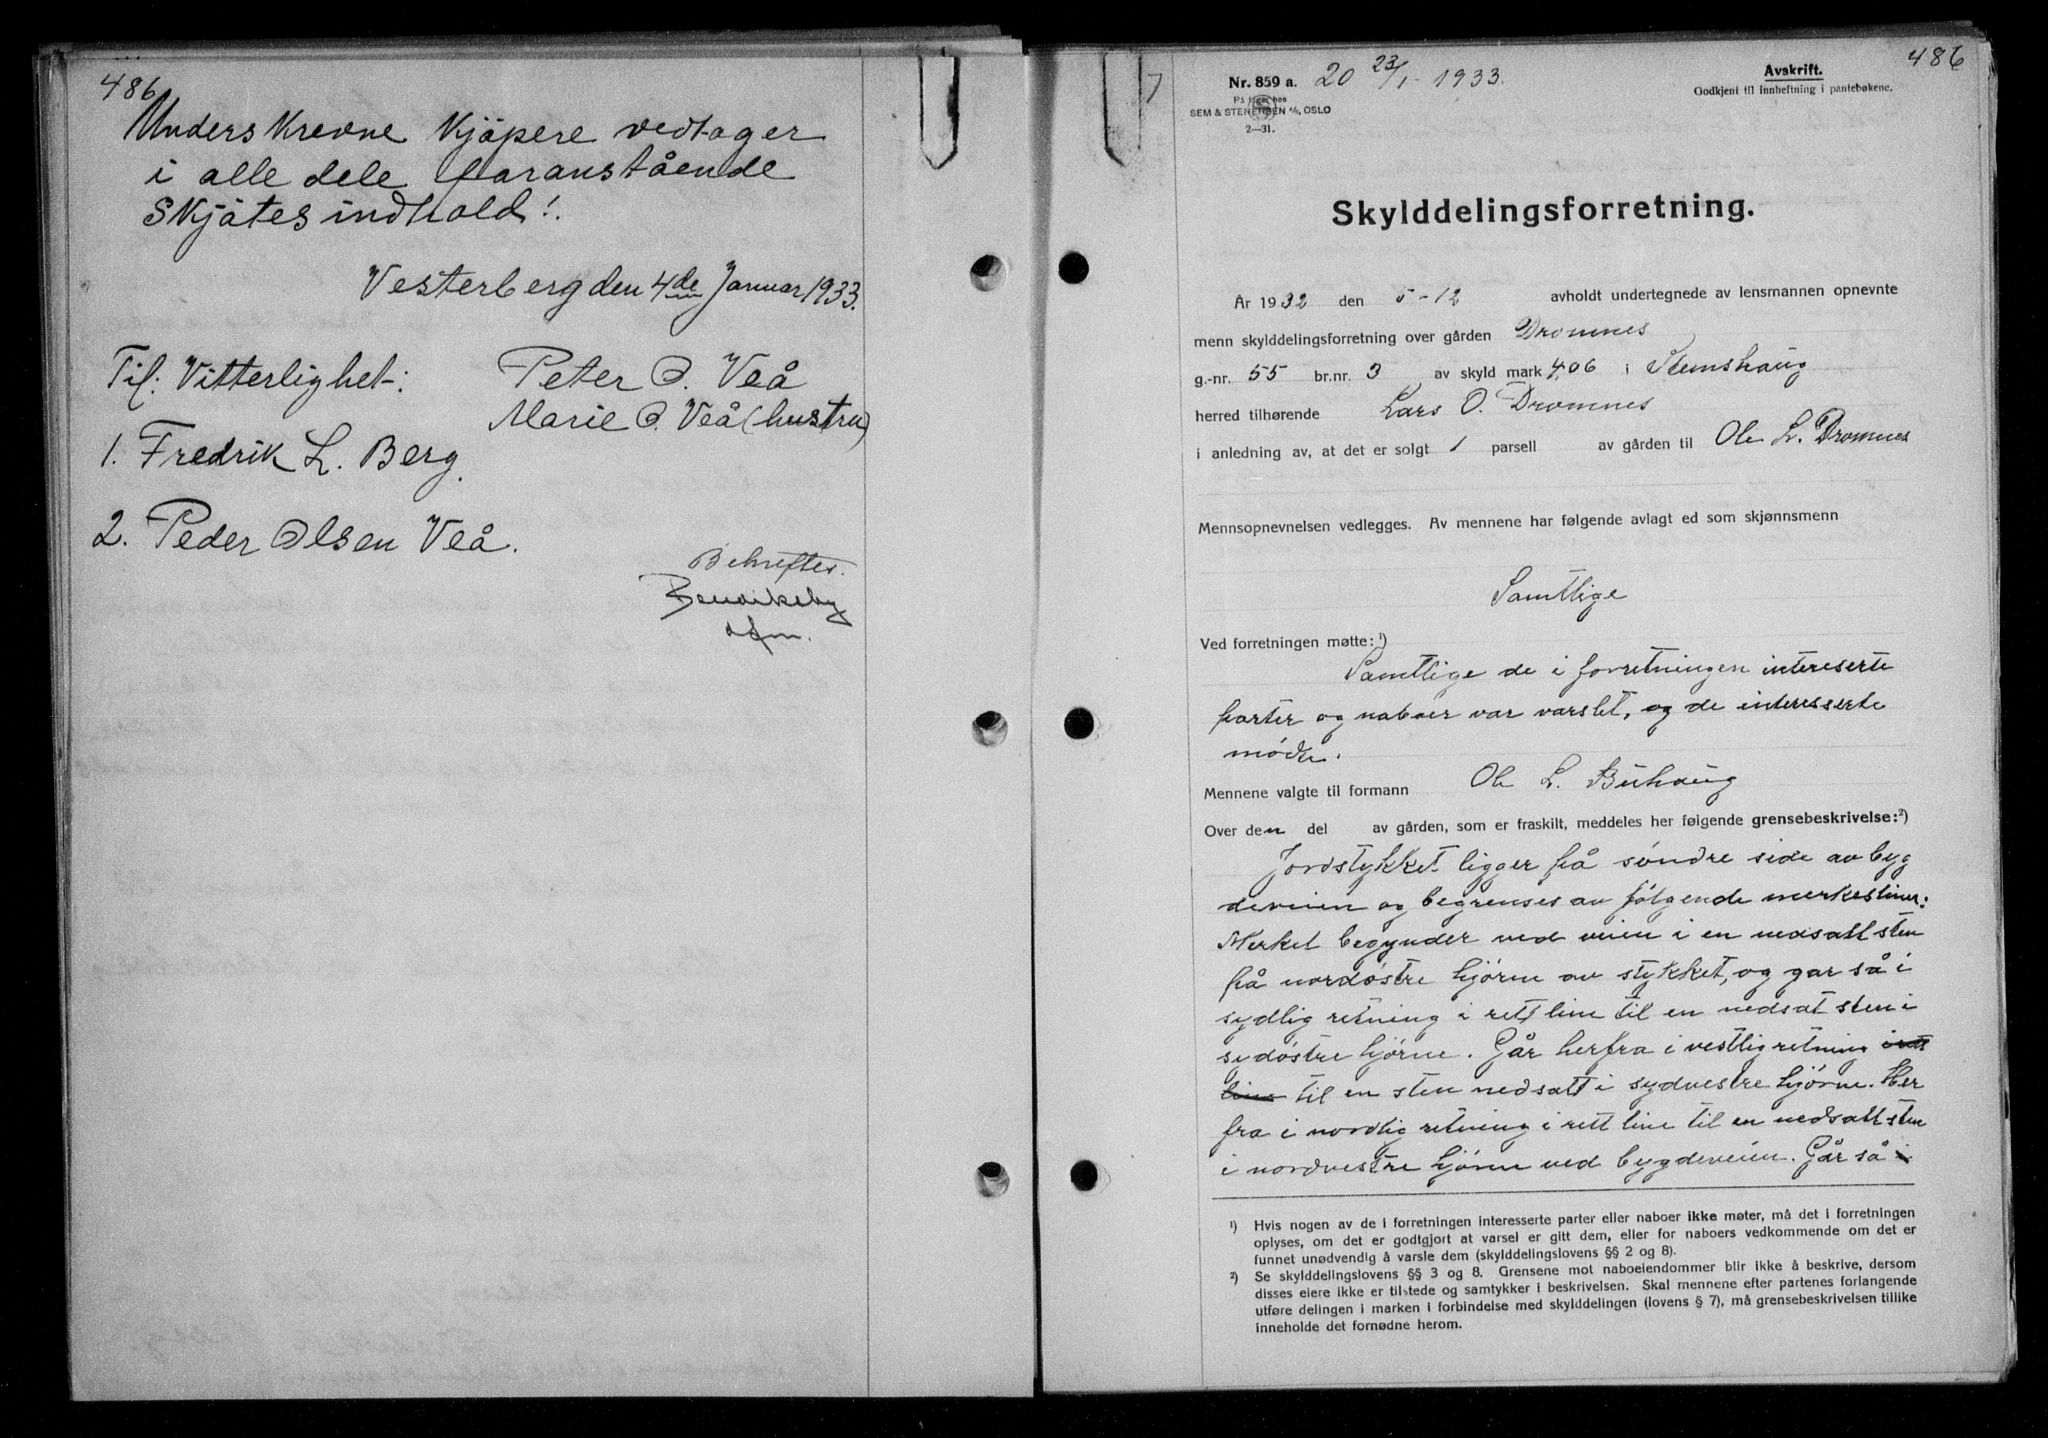 486
Underskrevne Kjöpere vedtager
i alle dele foranstående
Skjötes indhold!.
Vesterberg den 4de Januar 1933.
Til Vitterlighet:
Peter O. Veå
Marie O. Veå (hustru)
1. Fredrik L. Berg.
2. Peder Olsen Veå.
Bekreftes.
486
Nr. 859 a. 20 23/1-1933.
Avskrift.
Godkjent til innheftning i pantebøkene.
På lager hos
SEM & STENERSEN A/S, OSLO
2—31.
Skylddelingsforretning.
År 1932 den 5-12 avholdt undertegnede av lensmannen opnevnte
menn skylddelingsforretning over gården Dromnes
g.-nr. 55 br.nr. 3 av skyld mark 4,06 i Stemshaug
herred tilhørende Lars O. Dromnes
i anledning av, at det er solgt 1 parsell av gården til Ole L. Dromnes
Mennsopnevnelsen vedlegges. Av mennene har følgende avlagt ed som skjønnsmenn
Samtlige
Ved forretningen møtte:¹)
Samtlige de i forretningen intereserte
parter og naboer var varslet, og de interesserte
mødte.
Mennene valgte til formann Ole L. Buhaug
Over den del av gården, som er fraskilt, meddeles her følgende grensebeskrivelse:²)
Jordstykket ligger på søndre side av byg
deveien og begrenses av følgende merkesliner:
Merket begynder ved veien i en nedsatt sten
på nordøstre hjørne av stykket, og gar så i
sydlig retning i rett line til en nedsat sten i
sydøstre hjørne. Går herfra i vestlig retning i rett
line til en sten nedsatt i sydvestre hjørne. Her
fra i nordlig retning i rett line til en nedsatt sten
i nordvestre hjørne ved bygdeveien. Går så i
¹) Hvis nogen av de i forretningen interesserte parter eller naboer ikke møter, må det i forretningen
oplyses, om det er godtgjort at varsel er gitt dem, eller for naboers vedkommende om det er
funnet unødvendig å varsle dem (skylddelingslovens §§ 2 og 8).
²) Se skylddelingslovens §§ 3 og 8. Grensene mot naboeiendommer blir ikke å beskrive, dersom
disses eiere ikke er tilstede og samtykker i beskrivelsen. Skal mennene efter partenes forlangende
utføre delingen i marken i forbindelse med skylddelingen (lovens § 7), må grensebeskrivelsen tillike
inneholde det fornødne herom.